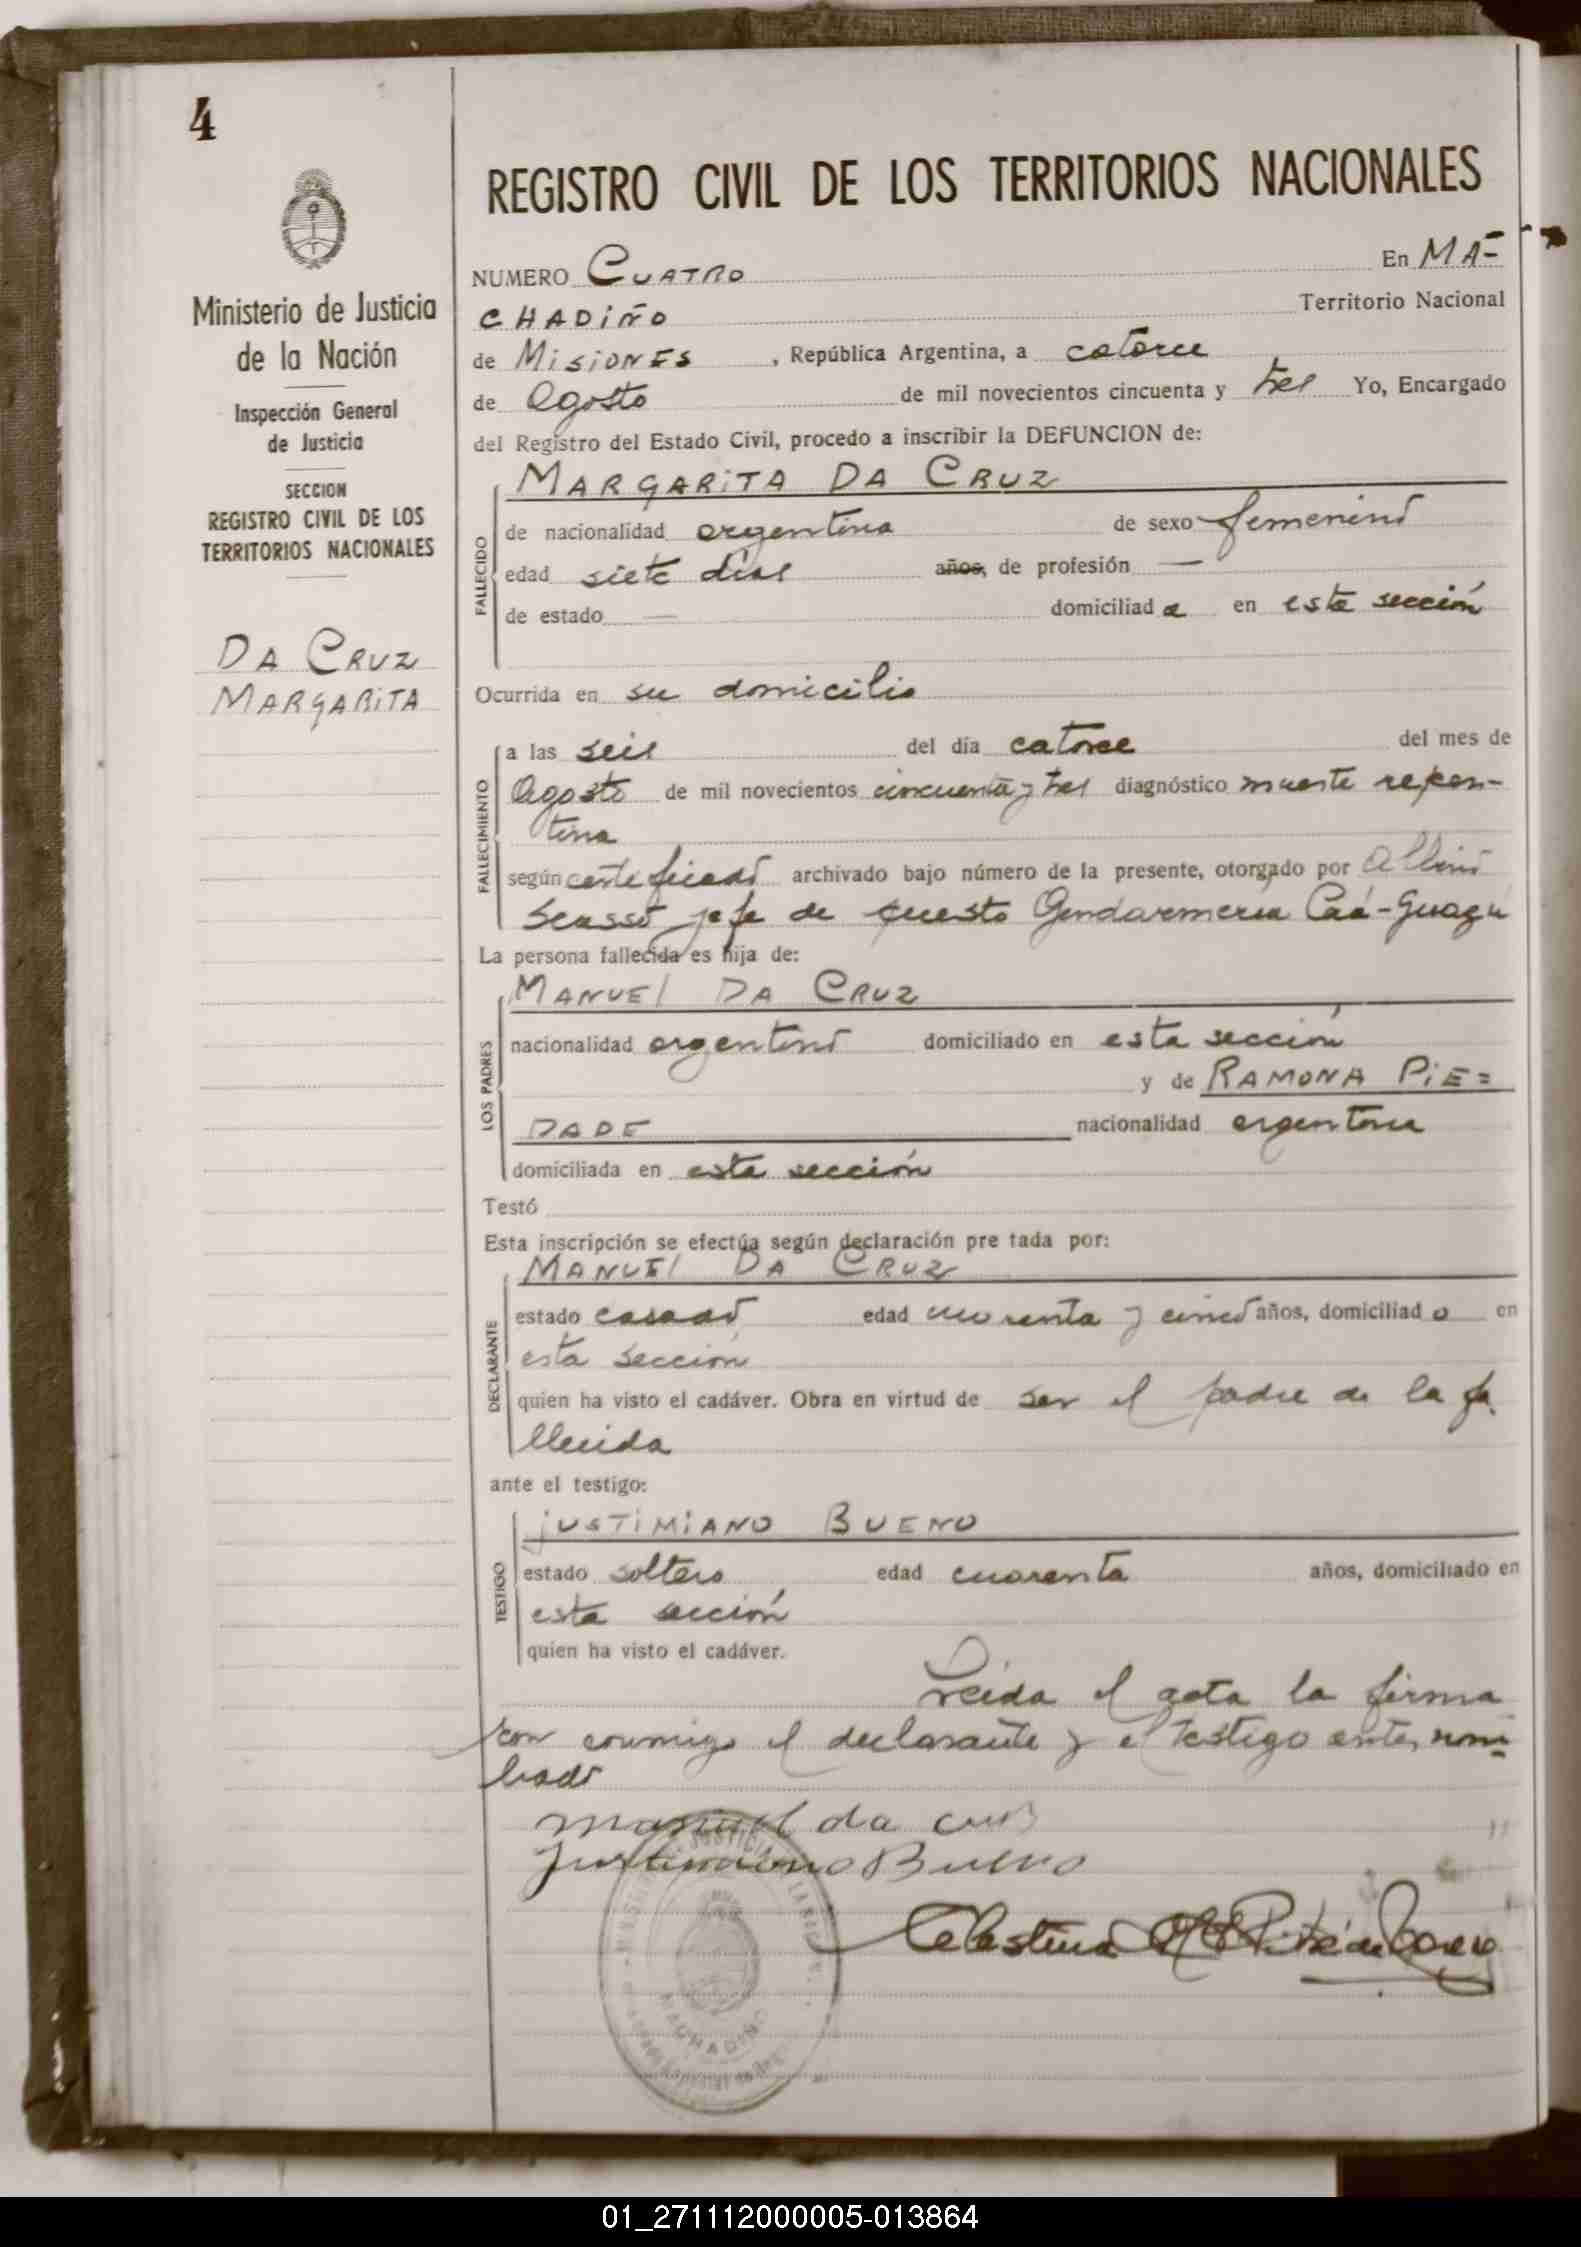 4
REGISTRO CIVIL DE LOS TERRITORIOS NACIONALES
Ministerio de Justicia
de la Nación
Inspección General
de Justicia
SECCION
REGISTRO CIVIL DE LOS
TERRITORIOS NACIONALES
DA CRUZ
MARGARITA
NUMERO CUATRO En MA=
CHADIÑO Territorio Nacional
de MISIONES , República Argentina, a catorce
de Agosto de mil novecientos cincuenta y tres Yo, Encargado
del Registro del Estado Civil, procedo a inscribir la DEFUNCION de:
MARGARITA DA CRUZ
FALLECIDO
de nacionalidad argentina de sexo femenino
edad siete días años, de profesión —
de estado — domiciliad a en esta sección
Ocurrida en su domicilio
FALLECIMIENTO
a las seis del día catorce del mes de
Agosto de mil novecientos cincuenta y tres diagnóstico muerte repen-
tina
según certificado archivado bajo número de la presente, otorgado por
jefe de puesto Gendarmeria Caá-Guazú
La persona fallecida es hija de:
LOS PADRES
MANUEL DA CRUZ
nacionalidad argentino domiciliado en esta sección
y de RAMONA PIE=
DADE nacionalidad argentina
domiciliada en esta sección
Testó
Esta inscripción se efectúa según declaración pre tada por:
DECLARANTE
MANUEL DA CRUZ
estado casado edad cuarenta y cinco años, domiciliad o en
esta sección
quien ha visto el cadáver. Obra en virtud de ser el padre de la fa
llecida
ante el testigo:
TESTIGO
JUSTIMIANO BUENO
estado soltero edad cuarenta años, domiciliado en
esta sección
quien ha visto el cadáver.
Leida el acta la firma
con conmigo el declarante y el testigo antes nom=
brado
manuel da cruz
Justimiano Bueno
Celestina
MACHADIÑO
01_271112000005-013864